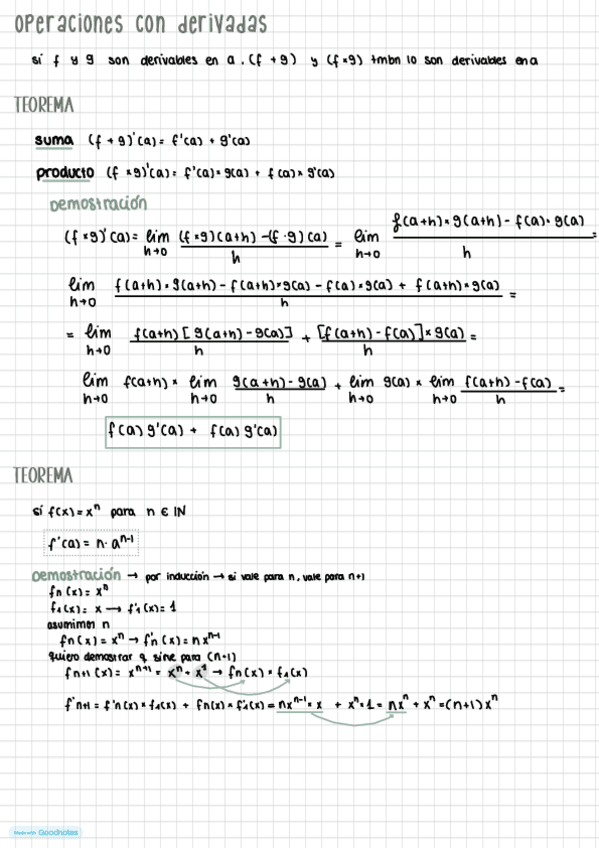 operaciones con derivadas
si f y g son derivables en a . (f + g) y (f × g) tmbn lo son derivables en a
TEOREMA
suma (f + g)'(a) = f'(a) + g'(a)
producto (f × g)'(a) = f'(a) × g(a) + f(a) × g'(a)
Demostración
(f × g)'(a) = lim h→0 (f × g)(a+h) - (f · g)(a) / h = lim h→0 f(a+h) × g(a+h) - f(a) · g(a) / h =
lim h→0 f(a+h) × g(a+h) - f(a+h) × g(a) - f(a) × g(a) + f(a+h) × g(a) / h =
= lim h→0 f(a+h) [g(a+h) - g(a)] / h + [f(a+h) - f(a)] × g(a) / h =
lim h→0 f(a+h) × lim h→0 g(a+h) - g(a) / h + lim h→0 g(a) × lim h→0 f(a+h) - f(a) / h =
f(a) g'(a) + f(a) g'(a)
TEOREMA
si f(x) = xⁿ para n ∈ IN
f'(a) = n · aⁿ⁻¹
Demostración → por inducción → si vale para n, vale para n+1
fn(x) = xⁿ
f₁(x) = x → f'₁(x) = 1
asumimos n
fn(x) = xⁿ → f'n(x) = nxⁿ⁻¹
quiero demostrar q sirve para (n+1)
fn+1(x) = xⁿ⁺¹ = xⁿ · x¹ → fn(x) × f₁(x)
f'n+1 = f'n(x) × f₁(x) + fn(x) × f'₁(x) = nxⁿ⁻¹ · x + xⁿ · 1 = nxⁿ + xⁿ = (n+1)xⁿ
Made with Goodnotes